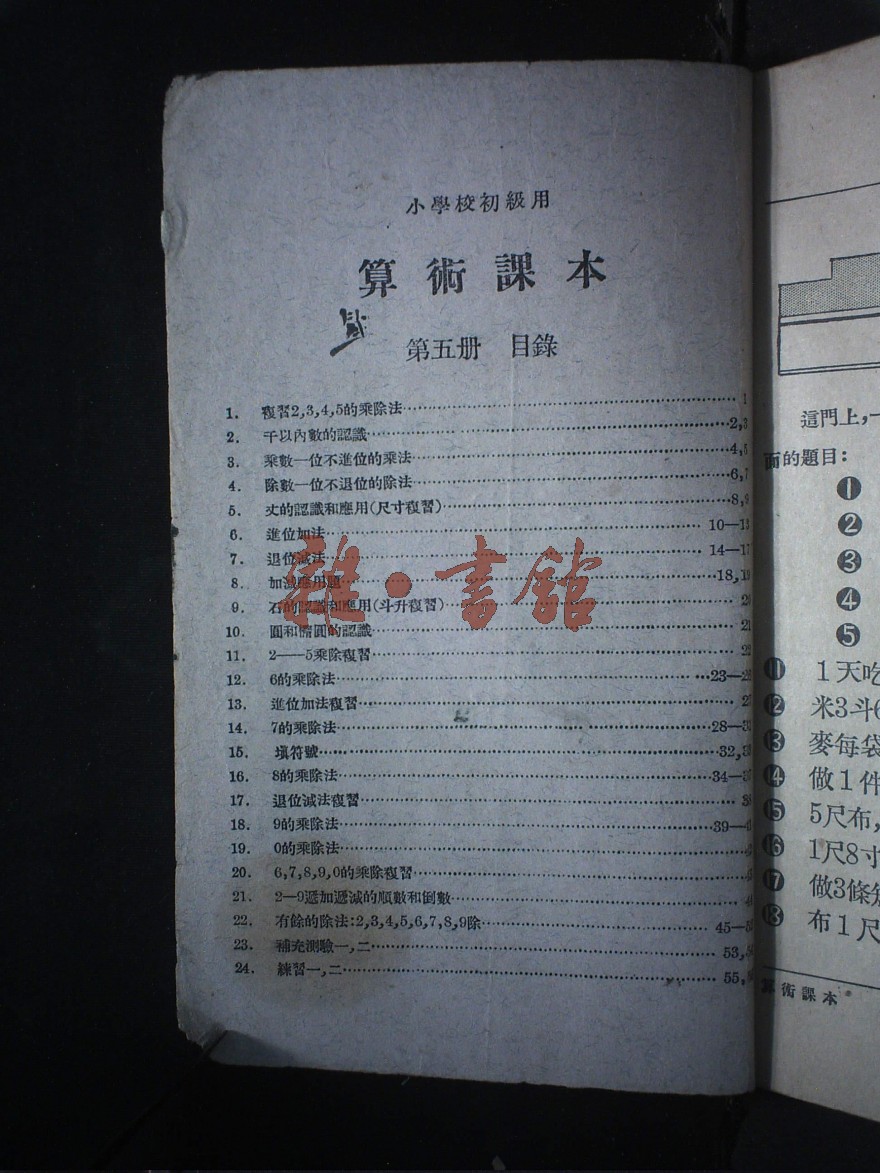 小學校初級用
算術課本
第五册 目錄
1. 複習2,3,4,5的乘除法……1
2. 千以內數的認識……2,3
3. 乘數一位不進位的乘法……4,5
4. 除數一位不退位的除法……6,7
5. 丈的認識和應用(尺寸複習)……8,9
6. 進位加法……10—13
7. 退位減法……14—17
8. 加減應用題……18,19
9. 石的認識和應用(斗升複習)……20
10. 圓和橢圓的認識……21
11. 2——5乘除複習……22
12. 6的乘除法……23—
13. 進位加法複習……2
14. 7的乘除法……28—3
15. 填符號……32,3
16. 8的乘除法……34—3
17. 退位減法複習……3
18. 9的乘除法……39—4
19. 0的乘除法……4
20. 6,7,8,9,0的乘除複習……4
21. 2—9遞加遞減的順數和倒數……4
22. 有餘的除法:2,3,4,5,6,7,8,9除……45—5
23. 補充測驗一,二……53,
24. 練習一,二……55,
雜·書館
這門上,一
面的題目:
❶
❷
❸
❹
❺
⓫ 1天吃
⓬ 米3斗6
⓭ 麥每袋
⓮ 做1件
⓯ 5尺布,
⓰ 1尺8寸
⓱ 做3條
⓲ 布1尺
算術課本